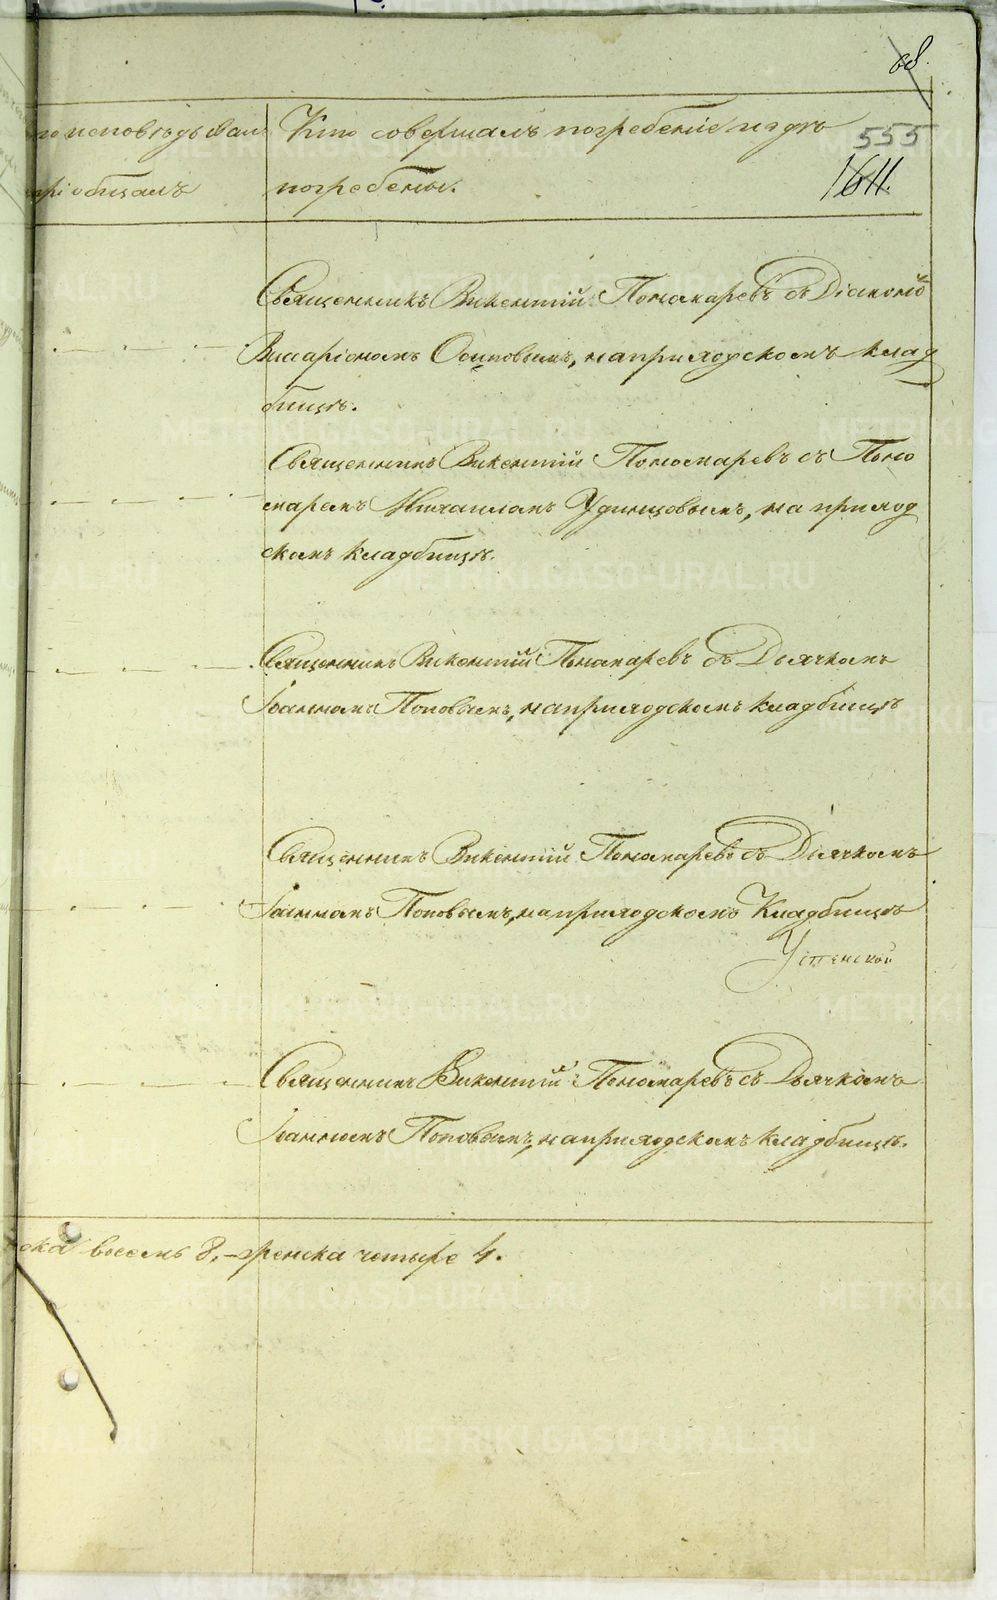 68.
555
1611.
то исповѣдывалъ
пріобщалъ
Кто совершалъ погребеніе и гдѣ
погребены.
Священникъ Викентій Пономаревъ съ Діакономъ
Виссаріономъ Осиповымъ, на приходскомъ клад
бищѣ.
Священникъ Викентій Пономаревъ съ Поно
маремъ Михаиломъ Удинцовымъ, на приход
скомъ кладбищѣ.
Священникъ Викентій Пономаревъ съ Дьячкомъ
Іоанномъ Поповымъ, на приходскомъ кладбищѣ
Священникъ Викентій Пономаревъ съ Дьячкомъ
Іоанномъ Поповымъ, на приходскомъ Кладбищѣ
Успенской
Священникъ Викентій Пономаревъ съ Дьячкомъ
Іоанномъ Поповымъ, на приходскомъ кладбищѣ.
ска восемь 8, женска четыре 4.
METRIKI.GASO-URAL.RU